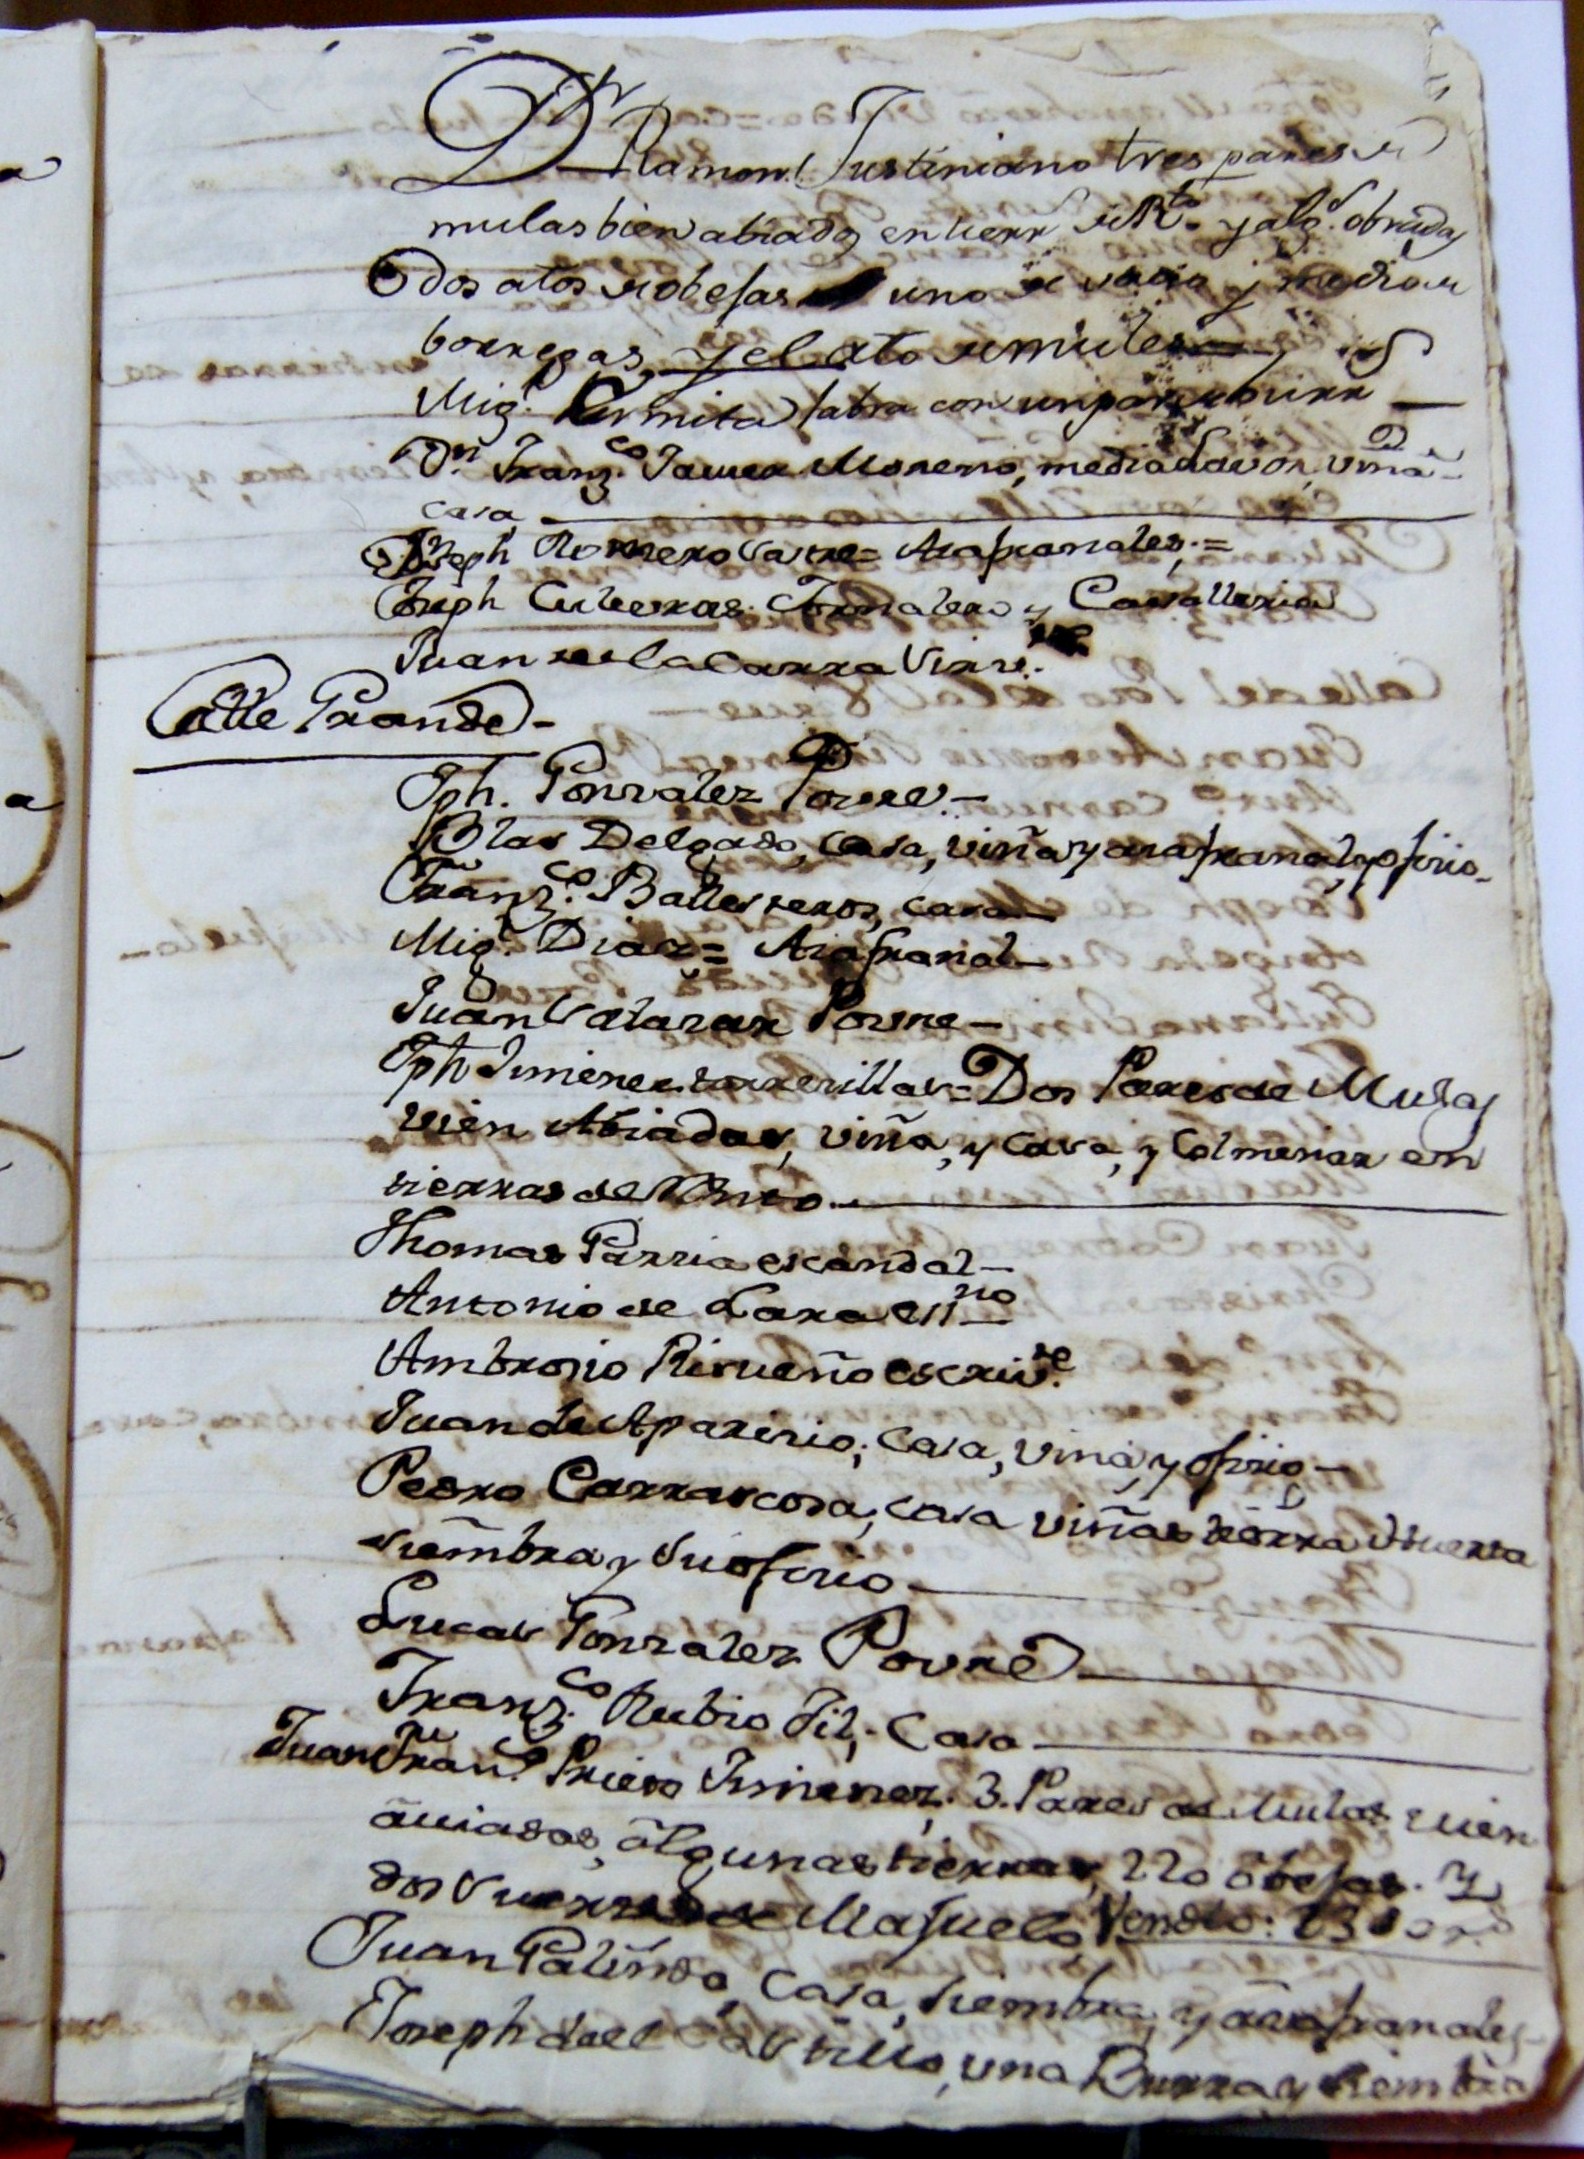 Dn Ramon Justiniano tres pares de
mulas bien abiados en tierr de Rto. y alg.s obradas
dos atos de obejas uno de vacio y medio de
borregas, y el ato de mulero y
Mig.l labra con un par de burr
Dn Franz.co Javier Moreno, media labor, viña
casa
Joseph Romero Sastre = Asafranales =
Joseph Cuberas Jornalero y Cavalleria
Juan de la Parra Virre.
Calle Grande -
Jph. Gonzalez Povre. -
Blas Delgado, casa, viña y asafranal, y ofisio -
Franz.co Ballesteros, casa -
Mig.l Diaz = Asafranal -
Juan Salazar Povre -
Jph Jimenez torrerillas = Dos Pares de Mulas
vien Abiadas, viña, y casa, y Colmenar en
tierras de
Thomas Garzia escandal -
Antonio de Lara essno
Ambrosio Risueño escriv.te
Juan de Aparisio; Casa, viña y ofisio -
Pedro Carrascosa; casa viñas tierra Dhuerta
siembra y su ofisio
Lucas Gonzalez Povre
Franz.co Rubio Gil; Casa
Juan Fran.co Prieto Jimenez; 3. Pares de Mulas vien
aviados, algunas tierras, 220 obejas. y
dos de Majuelo,
Juan Galindo, Casa, siembra, y asafranales -
Joseph dell Castillo, una Burra y siembra